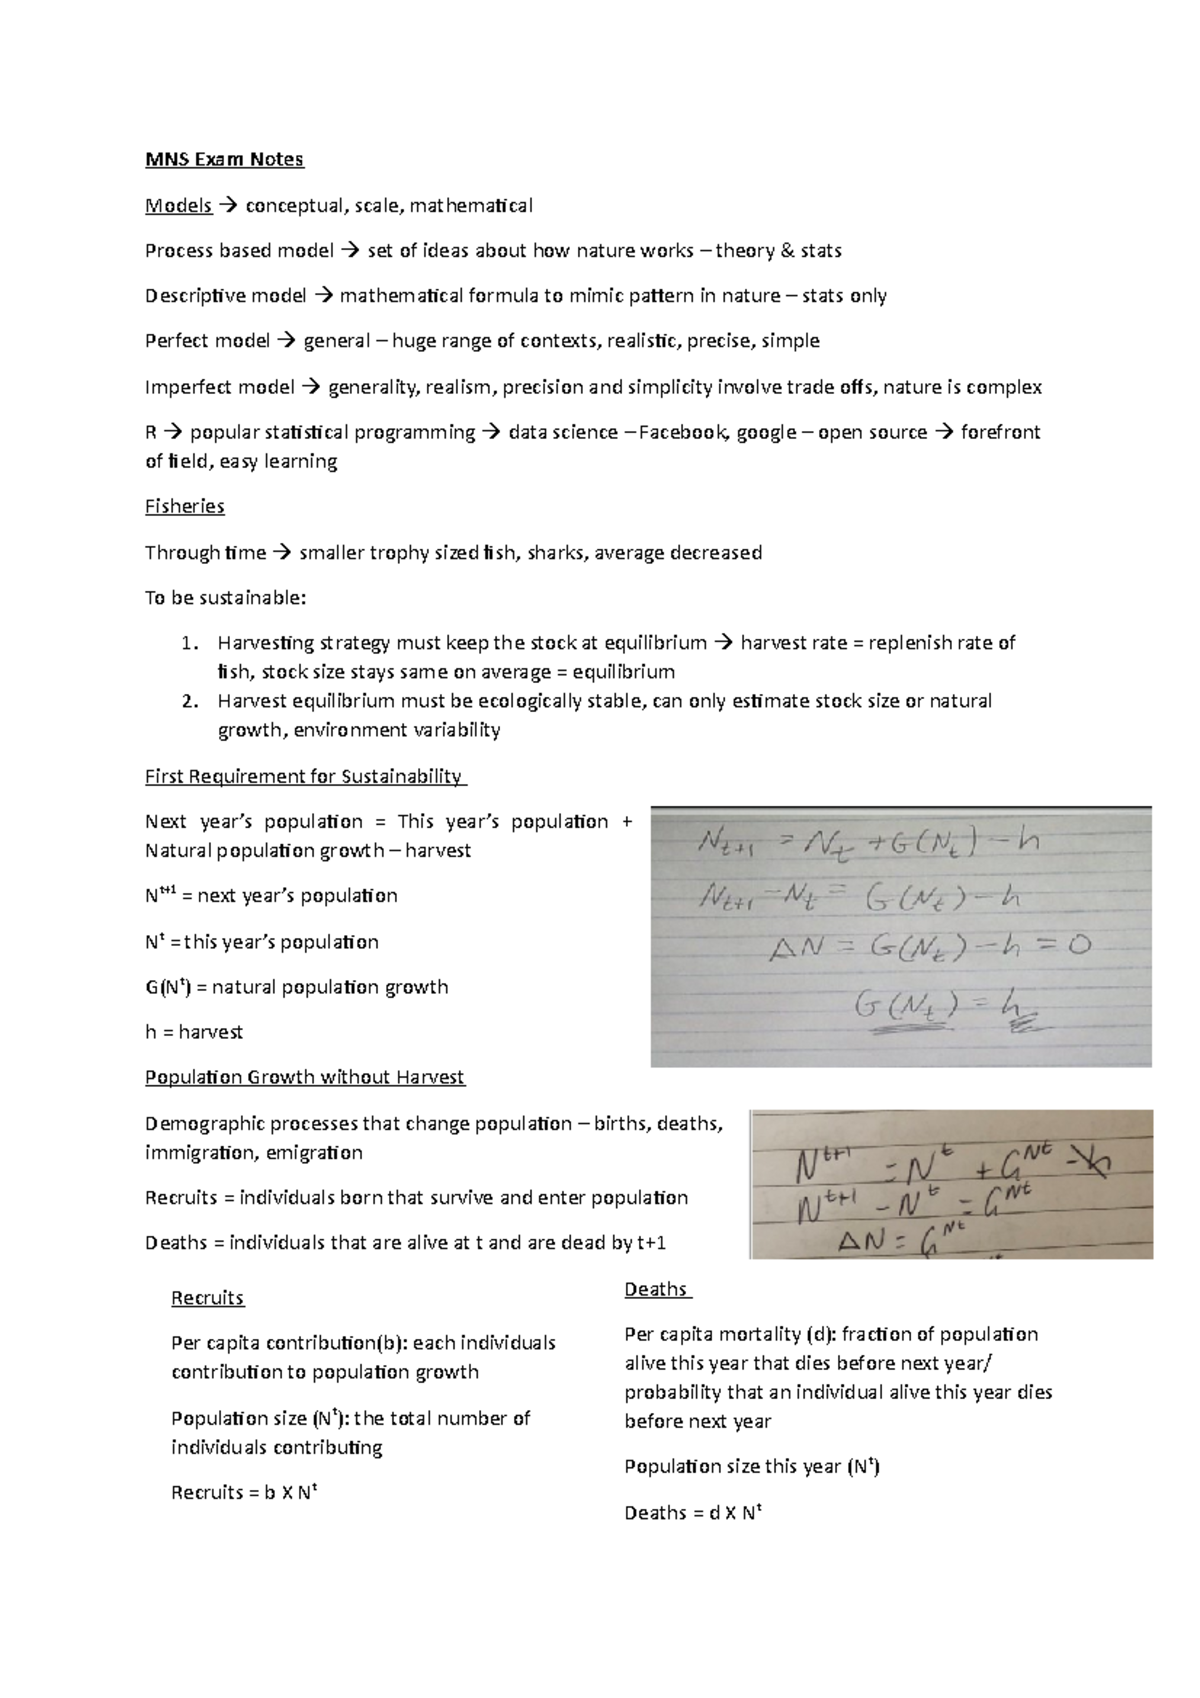 MNS Exam Notes
Models → conceptual, scale, mathematical
Process based model → set of ideas about how nature works – theory & stats
Descriptive model → mathematical formula to mimic pattern in nature – stats only
Perfect model → general – huge range of contexts, realistic, precise, simple
Imperfect model → generality, realism, precision and simplicity involve trade offs, nature is complex
R → popular statistical programming → data science – Facebook, google – open source → forefront
of field, easy learning
Fisheries
Through time → smaller trophy sized fish, sharks, average decreased
To be sustainable:
1. Harvesting strategy must keep the stock at equilibrium → harvest rate = replenish rate of
fish, stock size stays same on average = equilibrium
2. Harvest equilibrium must be ecologically stable, can only estimate stock size or natural
growth, environment variability
First Requirement for Sustainability
Next year’s population = This year’s population +
Natural population growth – harvest
Nᵗ⁺¹ = next year’s population
Nᵗ = this year’s population
G(Nᵗ) = natural population growth
h = harvest
N_{t+1} = N_t + G(N_t) – h
N_{t+1} – N_t = G(N_t) – h
ΔN = G(N_t) – h = 0
G(N_t) = h
Population Growth without Harvest
Demographic processes that change population – births, deaths,
immigration, emigration
Recruits = individuals born that survive and enter population
Deaths = individuals that are alive at t and are dead by t+1
N^{t+1} = N^t + G^{Nt} – h
N^{t+1} – N^t = G^{Nt}
ΔN = G^{Nt}
Recruits
Per capita contribution(b): each individuals
contribution to population growth
Population size (Nᵗ): the total number of
individuals contributing
Recruits = b X Nᵗ
Deaths
Per capita mortality (d): fraction of population
alive this year that dies before next year/
probability that an individual alive this year dies
before next year
Population size this year (Nᵗ)
Deaths = d X Nᵗ